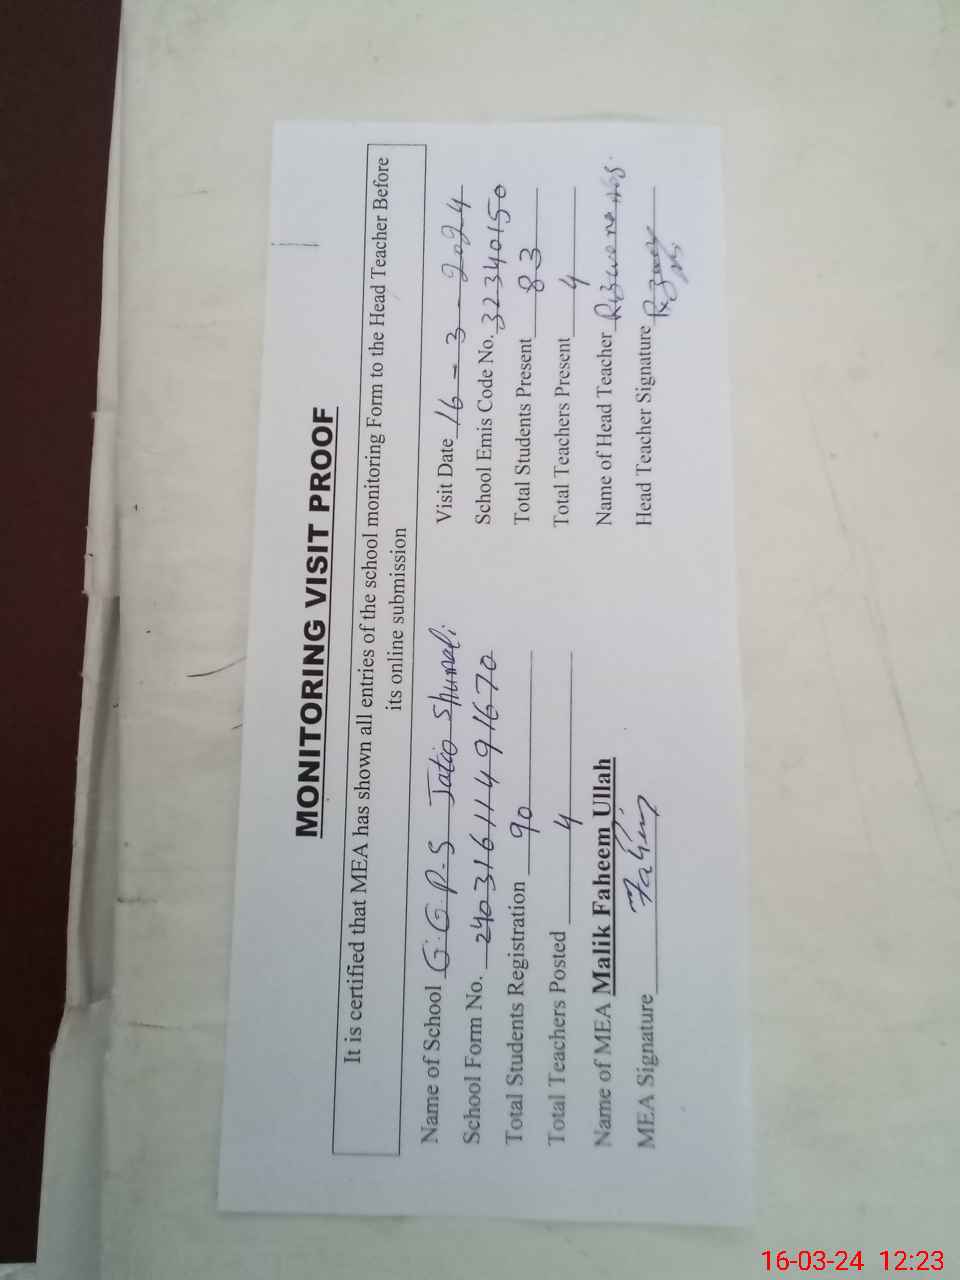 MONITORING VISIT PROOF
It is certified that MEA has shown all entries of the school monitoring Form to the Head Teacher Before
its online submission
Name of School G.G.P.S Jatio Shumali Visit Date 16 - 3 - 2024
School Form No. 24031611491670 School Emis Code No. 32340150
Total Students Registration 90 Total Students Present 83
Total Teachers Posted 4 Total Teachers Present 4
Name of MEA Malik Faheem Ullah Name of Head Teacher
MEA Signature Fahim Head Teacher Signature
16-03-24 12:23